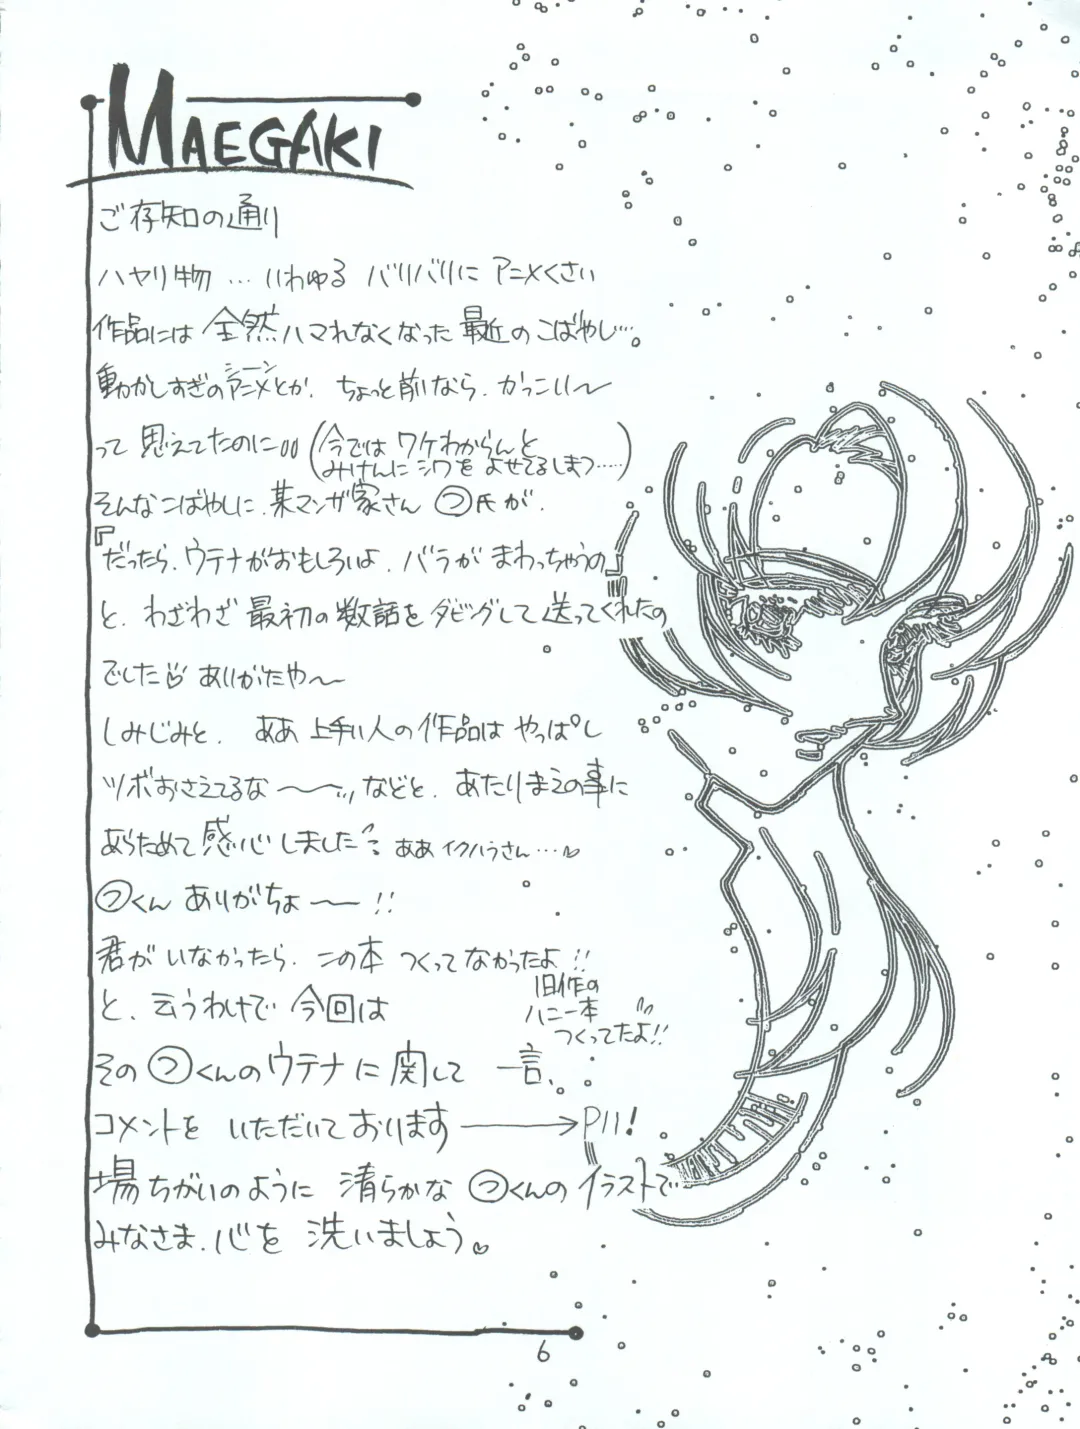 MAEGAKI
ご存知の通り
ハヤリ物…いわゆる バリバリに アニメくさい
作品には 全然ハマれなくなった 最近の こばやし…。
動かしすぎのアニメとか、ちょっと前なら、かっこいい〜
シーン
って 思えてたのに
(今では ワケわからんと
みけんに シワを よせてるしまつ……)
そんなこばやしに、某マンガ家さん つ氏が、
『だったら、ウテナがおもしろいよ、バラが まわっちゃうの』
と、わざわざ 最初の数話を ダビングして 送ってくれたの
でした ありがたや〜
しみじみと、 ああ 上手い人の作品は やっぱし
ツボおさえてるな〜〜 などと、あたりまえの事に
あらためて 感心しました ああ イクハラさん…♡
つくん ありがちょ〜〜!!
君が いなかったら、この本 つくって なかったよ!!
旧作の
ハニー本
つくってたよ!!
と、云うわけで 今回は
その つくんのウテナに 関して 一言、
コメントを いただいて おります ――→ P11!
場ちがいのように 清らかな つくんの イラストで
みなさま、心を 洗いましょう。♡
6